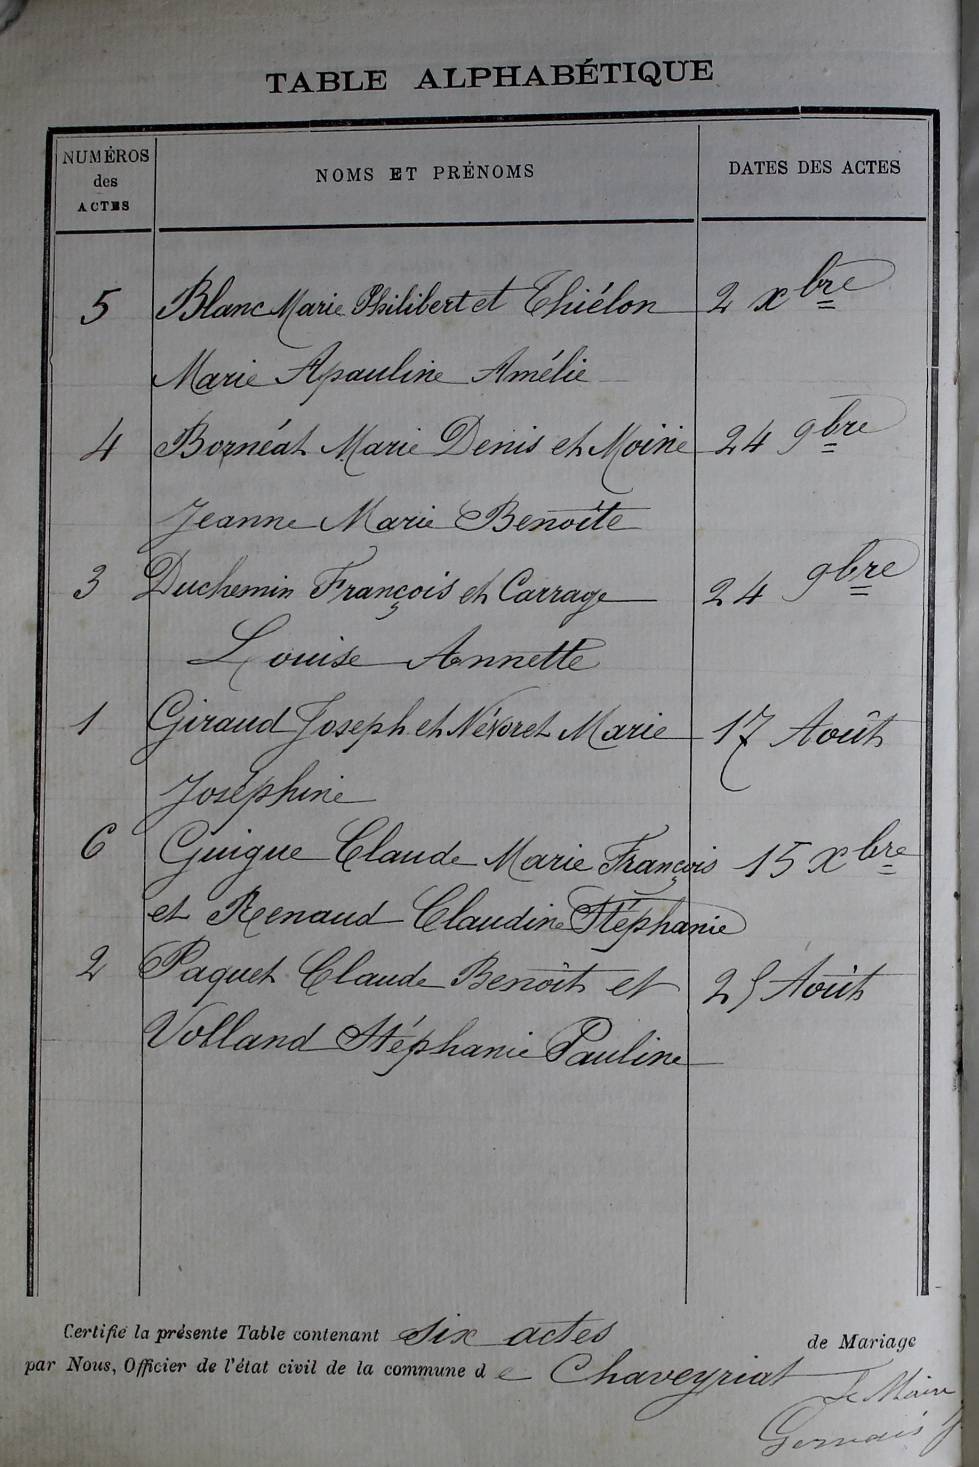 TABLE ALPHABÉTIQUE
NUMÉROS des ACTES NOMS ET PRÉNOMS DATES DES ACTES
5 Blanc Marie Philibert et Thiélon 2 xbre
Marie Apauline Amélie
4 Bornéat Marie Denis et Moine 24 9bre
Jeanne Marie Benoîte
3 Duchemin François et Carrage 24 9bre
Louise Annette
1 Giraud Joseph et Névoret Marie 17 Août
Joséphine
6 Guigue Claude Marie François 15 xbre
et Renaud Claudine Stéphanie
2 Paquet Claude Benoît et 25 Août
Volland Stéphanie Pauline
Certifié la présente Table contenant six actes de Mariage
par Nous, Officier de l'état civil de la commune de Chaveyriat
Le Maire
Gervais